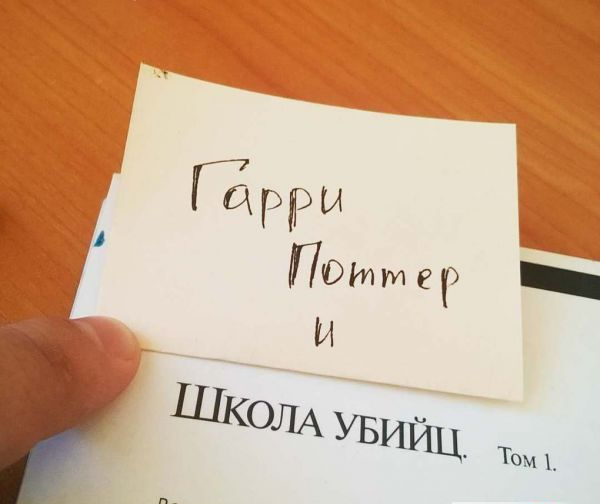 Гарри
Поттер
и
ШКОЛА УБИЙЦ. Том 1.